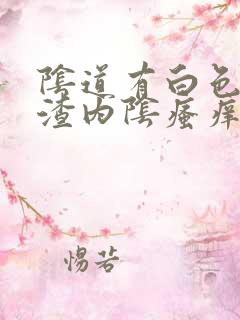 陰道有白色
渣內陰瘙癢
惕若